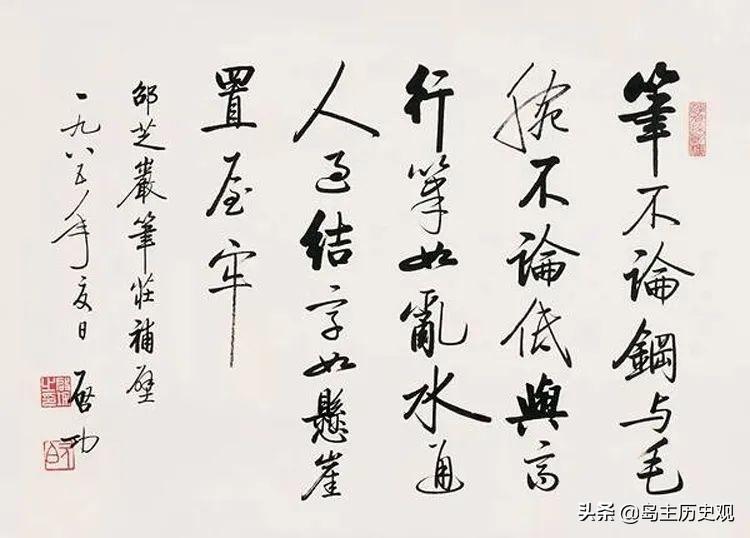 筆不論鋼与毛
腕不論低與高
行筆如亂水通
人過結字如懸崖
置屋牢
邵芝巖筆莊補壁
一九八五年夏日 啓功
头条 @岛主历史观